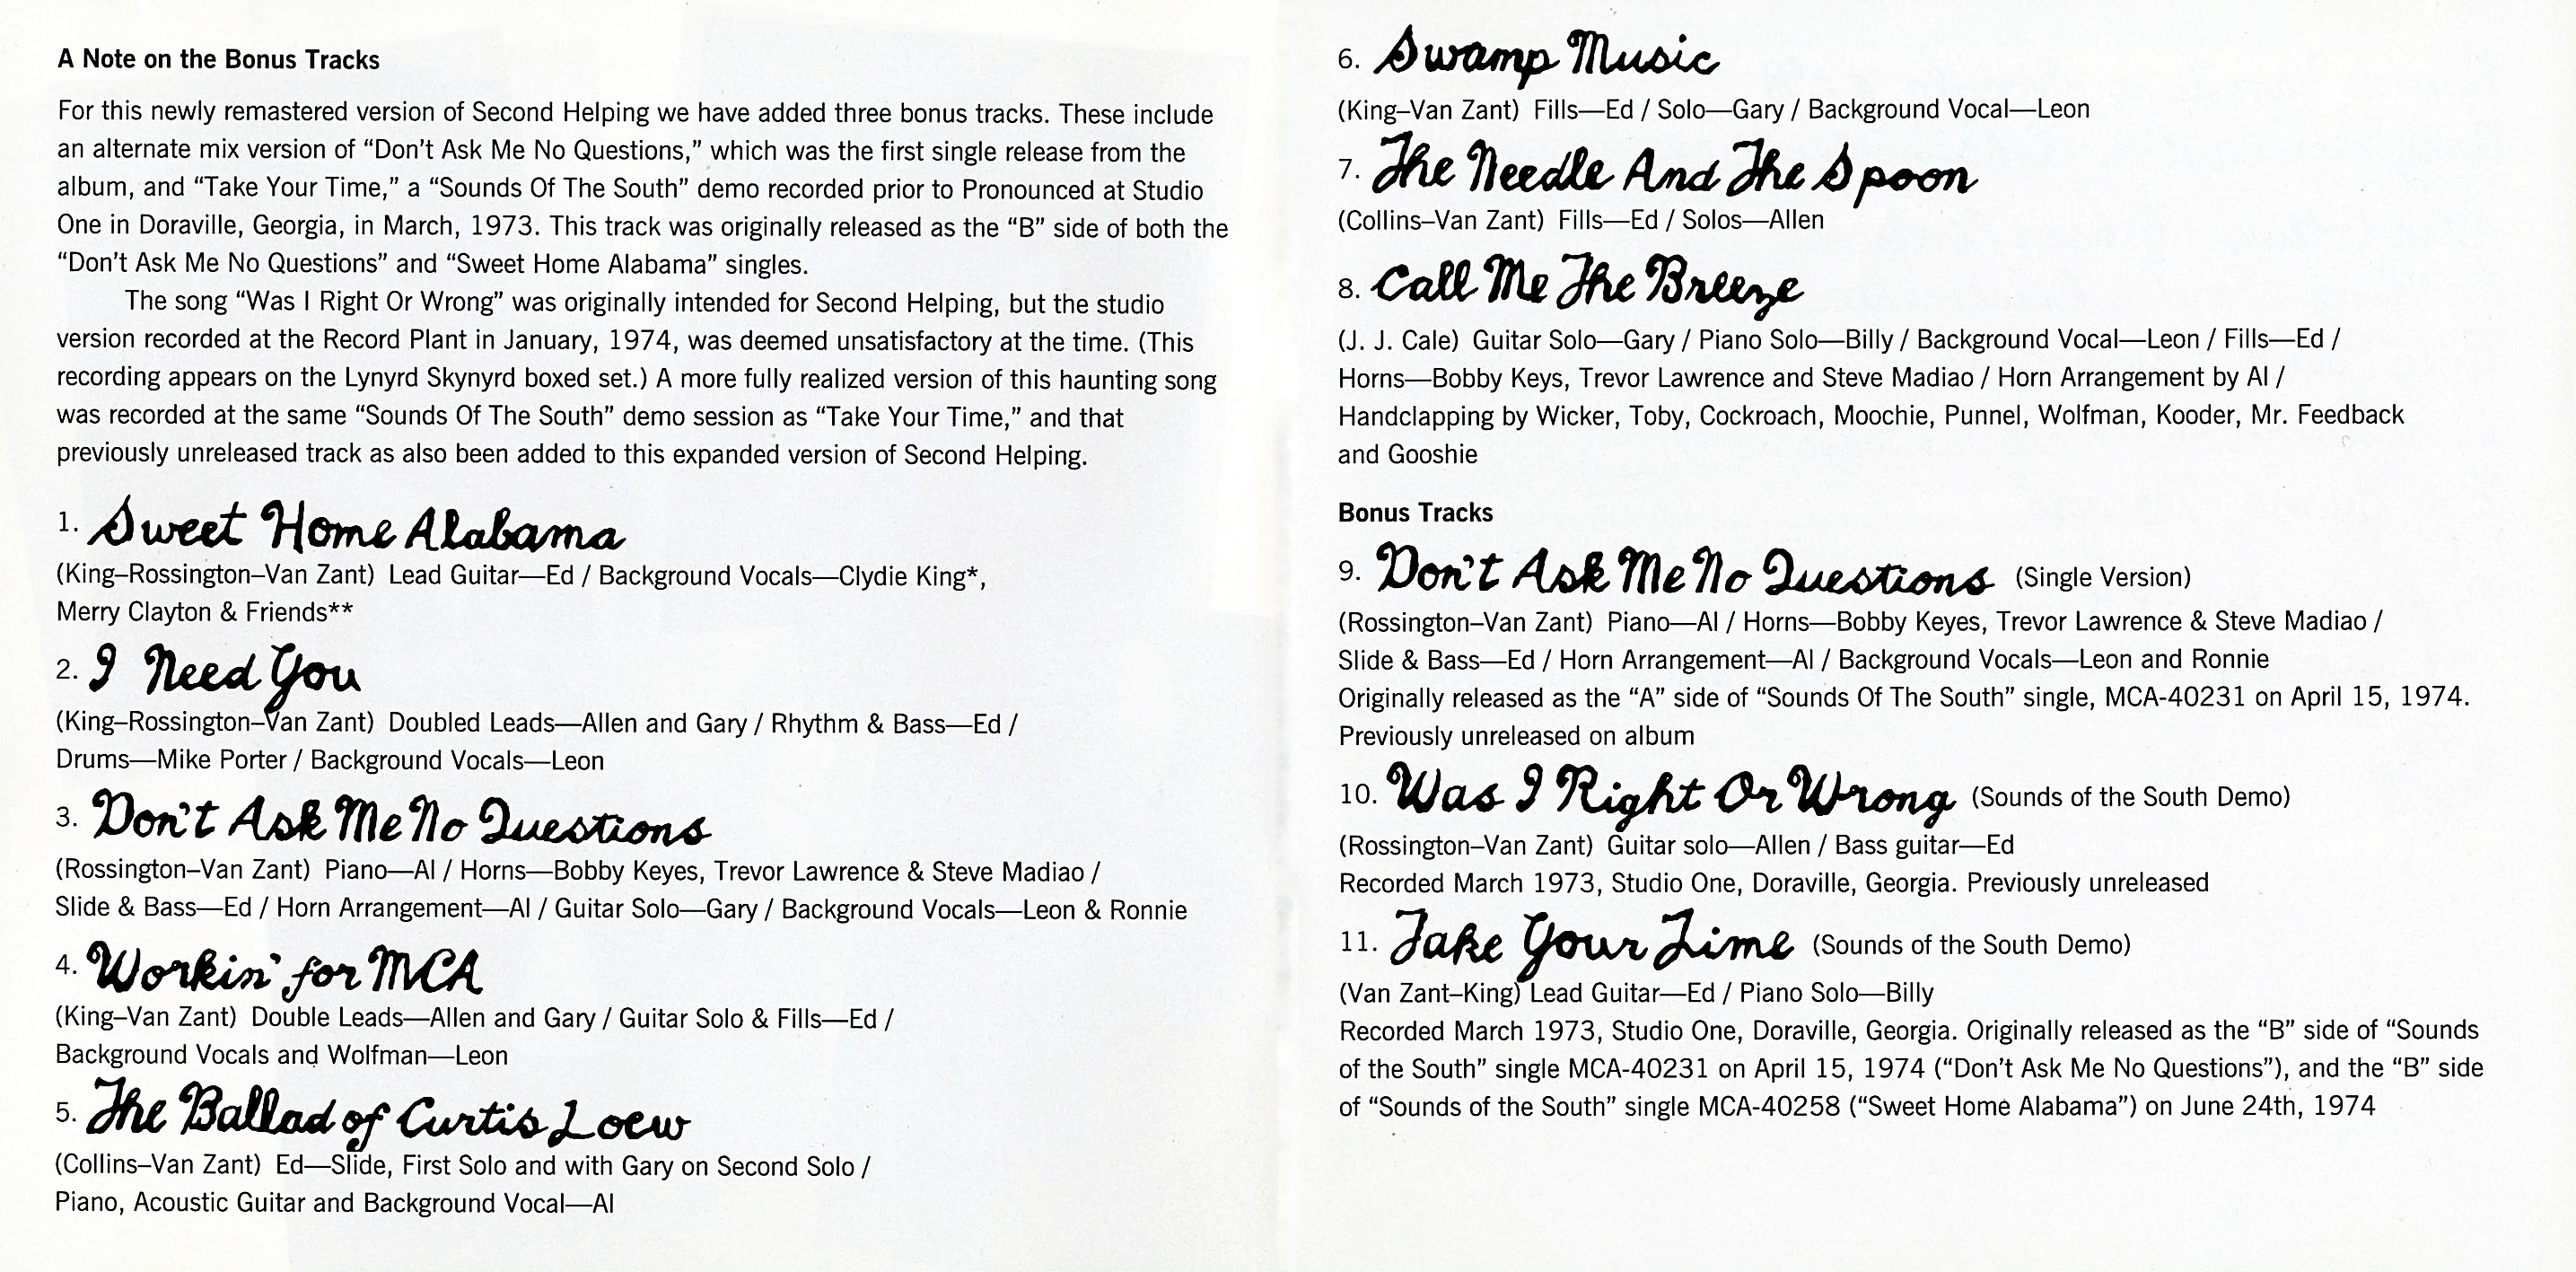 A Note on the Bonus Tracks
For this newly remastered version of Second Helping we have added three bonus tracks. These include
an alternate mix version of “Don’t Ask Me No Questions,” which was the first single release from the
album, and “Take Your Time,” a “Sounds Of The South” demo recorded prior to Pronounced at Studio
One in Doraville, Georgia, in March, 1973. This track was originally released as the “B” side of both the
“Don’t Ask Me No Questions” and “Sweet Home Alabama” singles.
The song “Was I Right Or Wrong” was originally intended for Second Helping, but the studio
version recorded at the Record Plant in January, 1974, was deemed unsatisfactory at the time. (This
recording appears on the Lynyrd Skynyrd boxed set.) A more fully realized version of this haunting song
was recorded at the same “Sounds Of The South” demo session as “Take Your Time,” and that
previously unreleased track as also been added to this expanded version of Second Helping.
1. Sweet Home Alabama
(King–Rossington–Van Zant) Lead Guitar—Ed / Background Vocals—Clydie King*,
Merry Clayton & Friends**
2. I Need You
(King–Rossington–Van Zant) Doubled Leads—Allen and Gary / Rhythm & Bass—Ed /
Drums—Mike Porter / Background Vocals—Leon
3. Don't Ask Me No Questions
(Rossington–Van Zant) Piano—Al / Horns—Bobby Keyes, Trevor Lawrence & Steve Madiao /
Slide & Bass—Ed / Horn Arrangement—Al / Guitar Solo—Gary / Background Vocals—Leon & Ronnie
4. Workin' for MCA
(King–Van Zant) Double Leads—Allen and Gary / Guitar Solo & Fills—Ed /
Background Vocals and Wolfman—Leon
5. The Ballad of Curtis Loew
(Collins–Van Zant) Ed—Slide, First Solo and with Gary on Second Solo /
Piano, Acoustic Guitar and Background Vocal—Al
6. Swamp Music
(King–Van Zant) Fills—Ed / Solo—Gary / Background Vocal—Leon
7. The Needle And The Spoon
(Collins–Van Zant) Fills—Ed / Solos—Allen
8. Call Me The Breeze
(J. J. Cale) Guitar Solo—Gary / Piano Solo—Billy / Background Vocal—Leon / Fills—Ed /
Horns—Bobby Keys, Trevor Lawrence and Steve Madiao / Horn Arrangement by Al /
Handclapping by Wicker, Toby, Cockroach, Moochie, Punnel, Wolfman, Kooder, Mr. Feedback
and Gooshie
Bonus Tracks
9. Don't Ask Me No Questions (Single Version)
(Rossington–Van Zant) Piano—Al / Horns—Bobby Keyes, Trevor Lawrence & Steve Madiao /
Slide & Bass—Ed / Horn Arrangement—Al / Background Vocals—Leon and Ronnie
Originally released as the “A” side of “Sounds Of The South” single, MCA-40231 on April 15, 1974.
Previously unreleased on album
10. Was I Right Or Wrong (Sounds of the South Demo)
(Rossington–Van Zant) Guitar solo—Allen / Bass guitar—Ed
Recorded March 1973, Studio One, Doraville, Georgia. Previously unreleased
11. Take Your Time (Sounds of the South Demo)
(Van Zant–King) Lead Guitar—Ed / Piano Solo—Billy
Recorded March 1973, Studio One, Doraville, Georgia. Originally released as the “B” side of “Sounds
of the South” single MCA-40231 on April 15, 1974 (“Don’t Ask Me No Questions”), and the “B” side
of “Sounds of the South” single MCA-40258 (“Sweet Home Alabama”) on June 24th, 1974